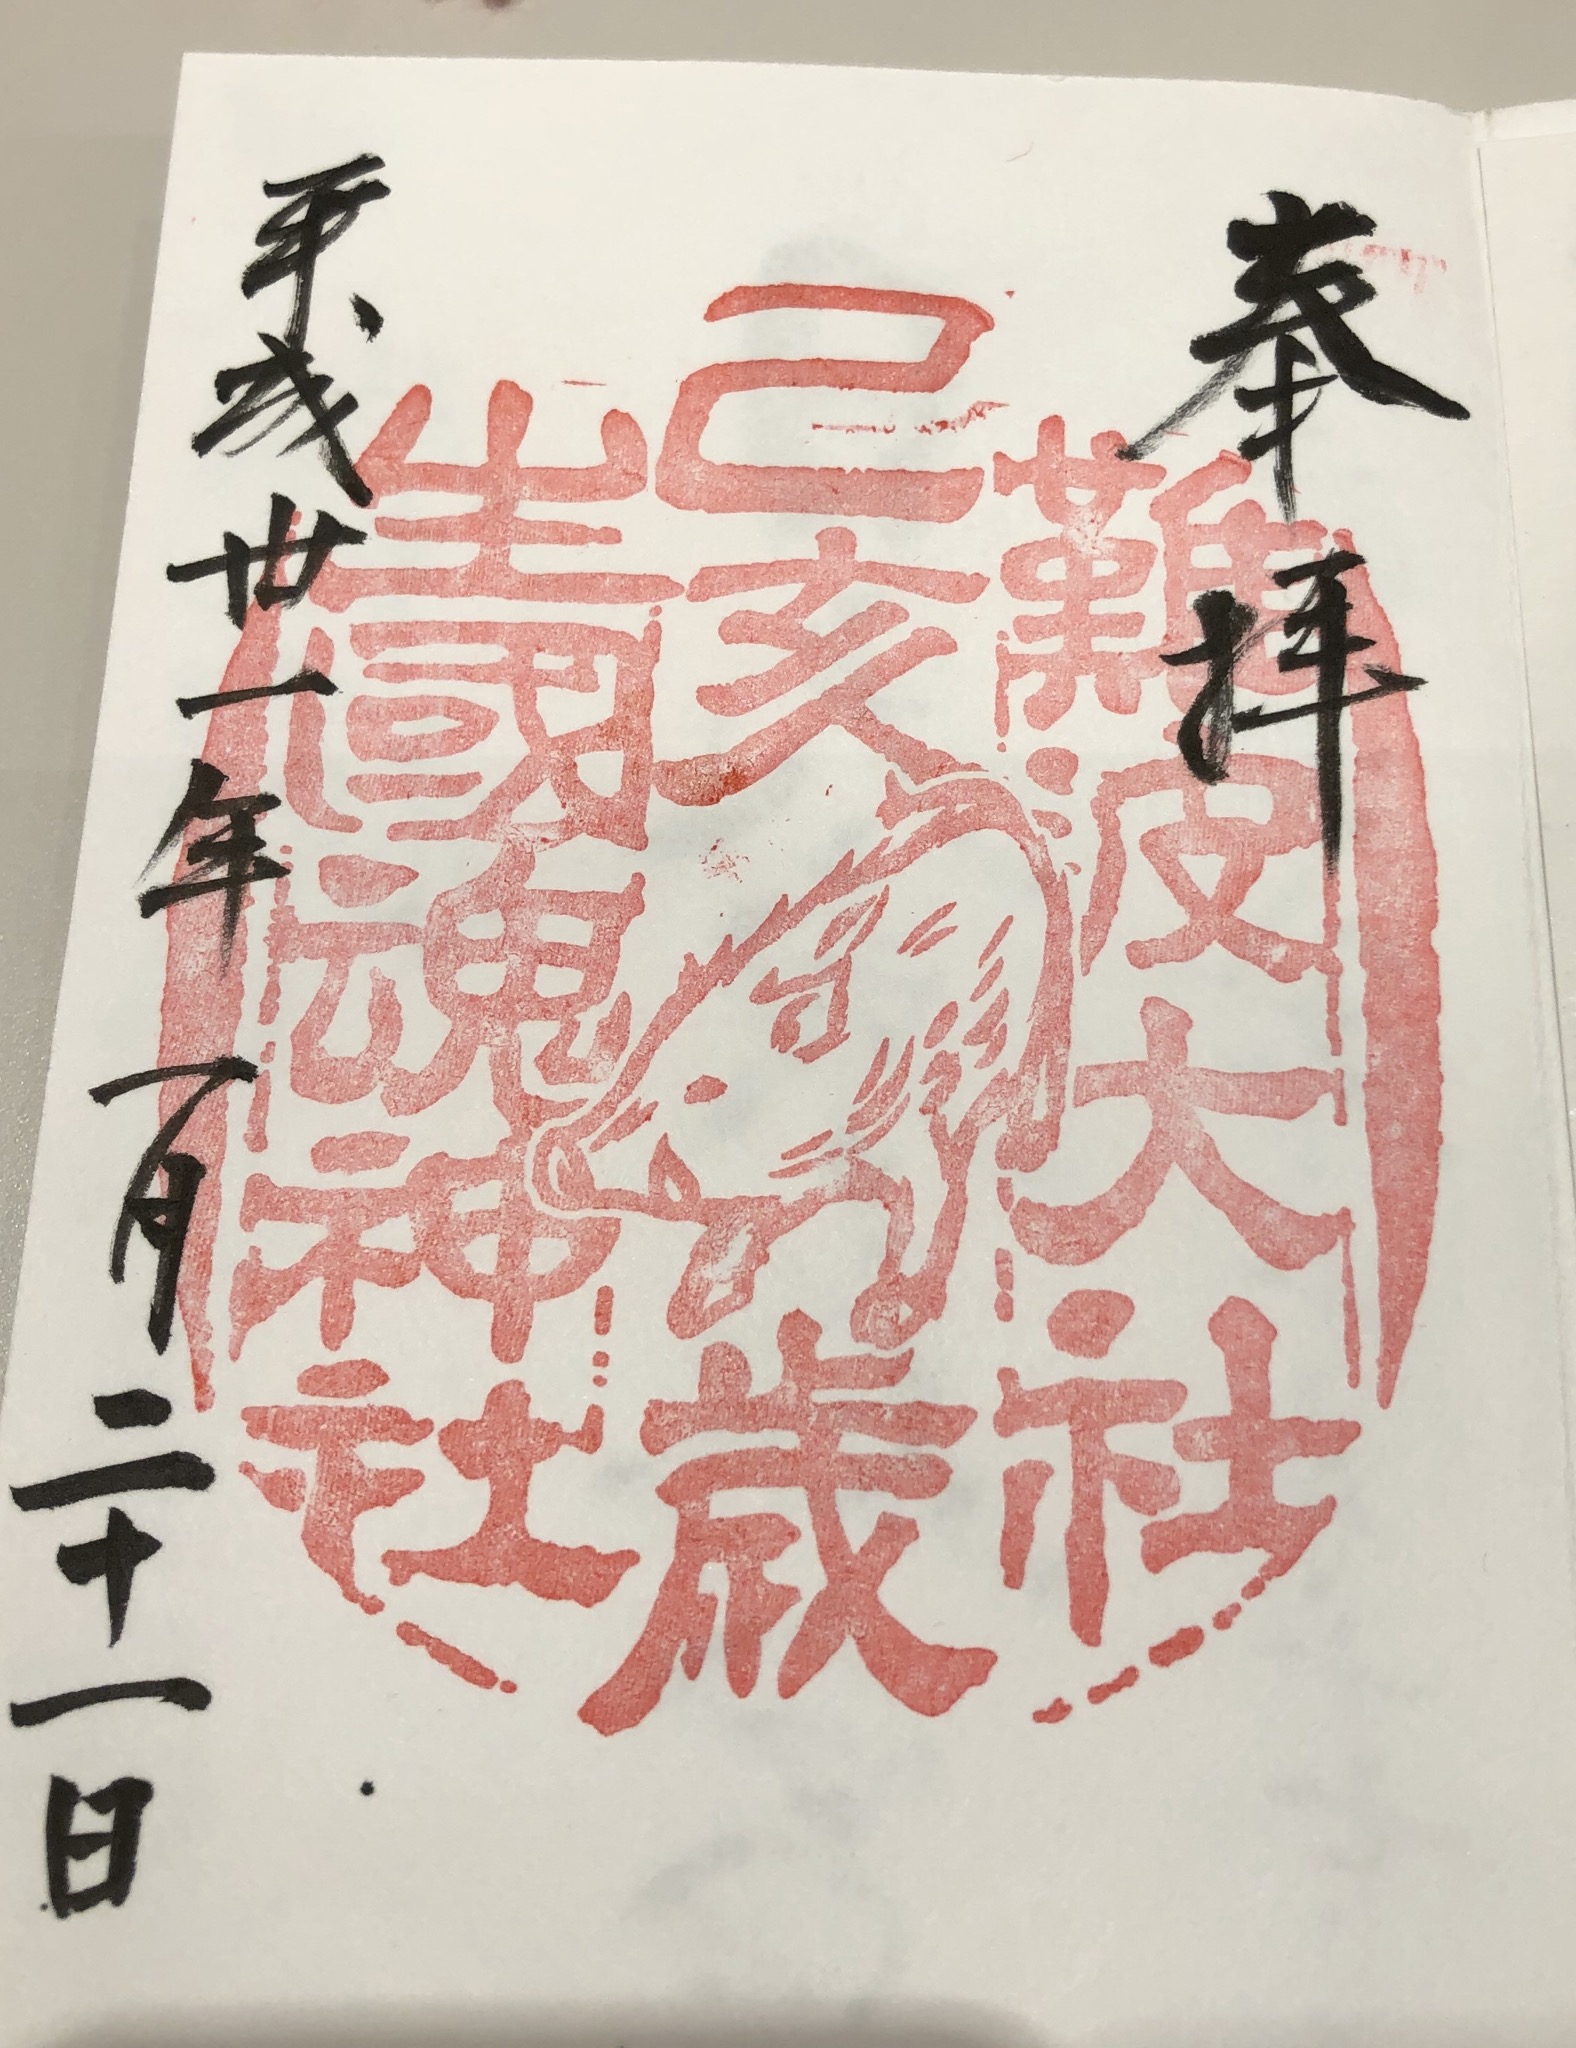 奉拝
難波大社
己亥歳
生國魂神社
平成廿一年一月二十一日